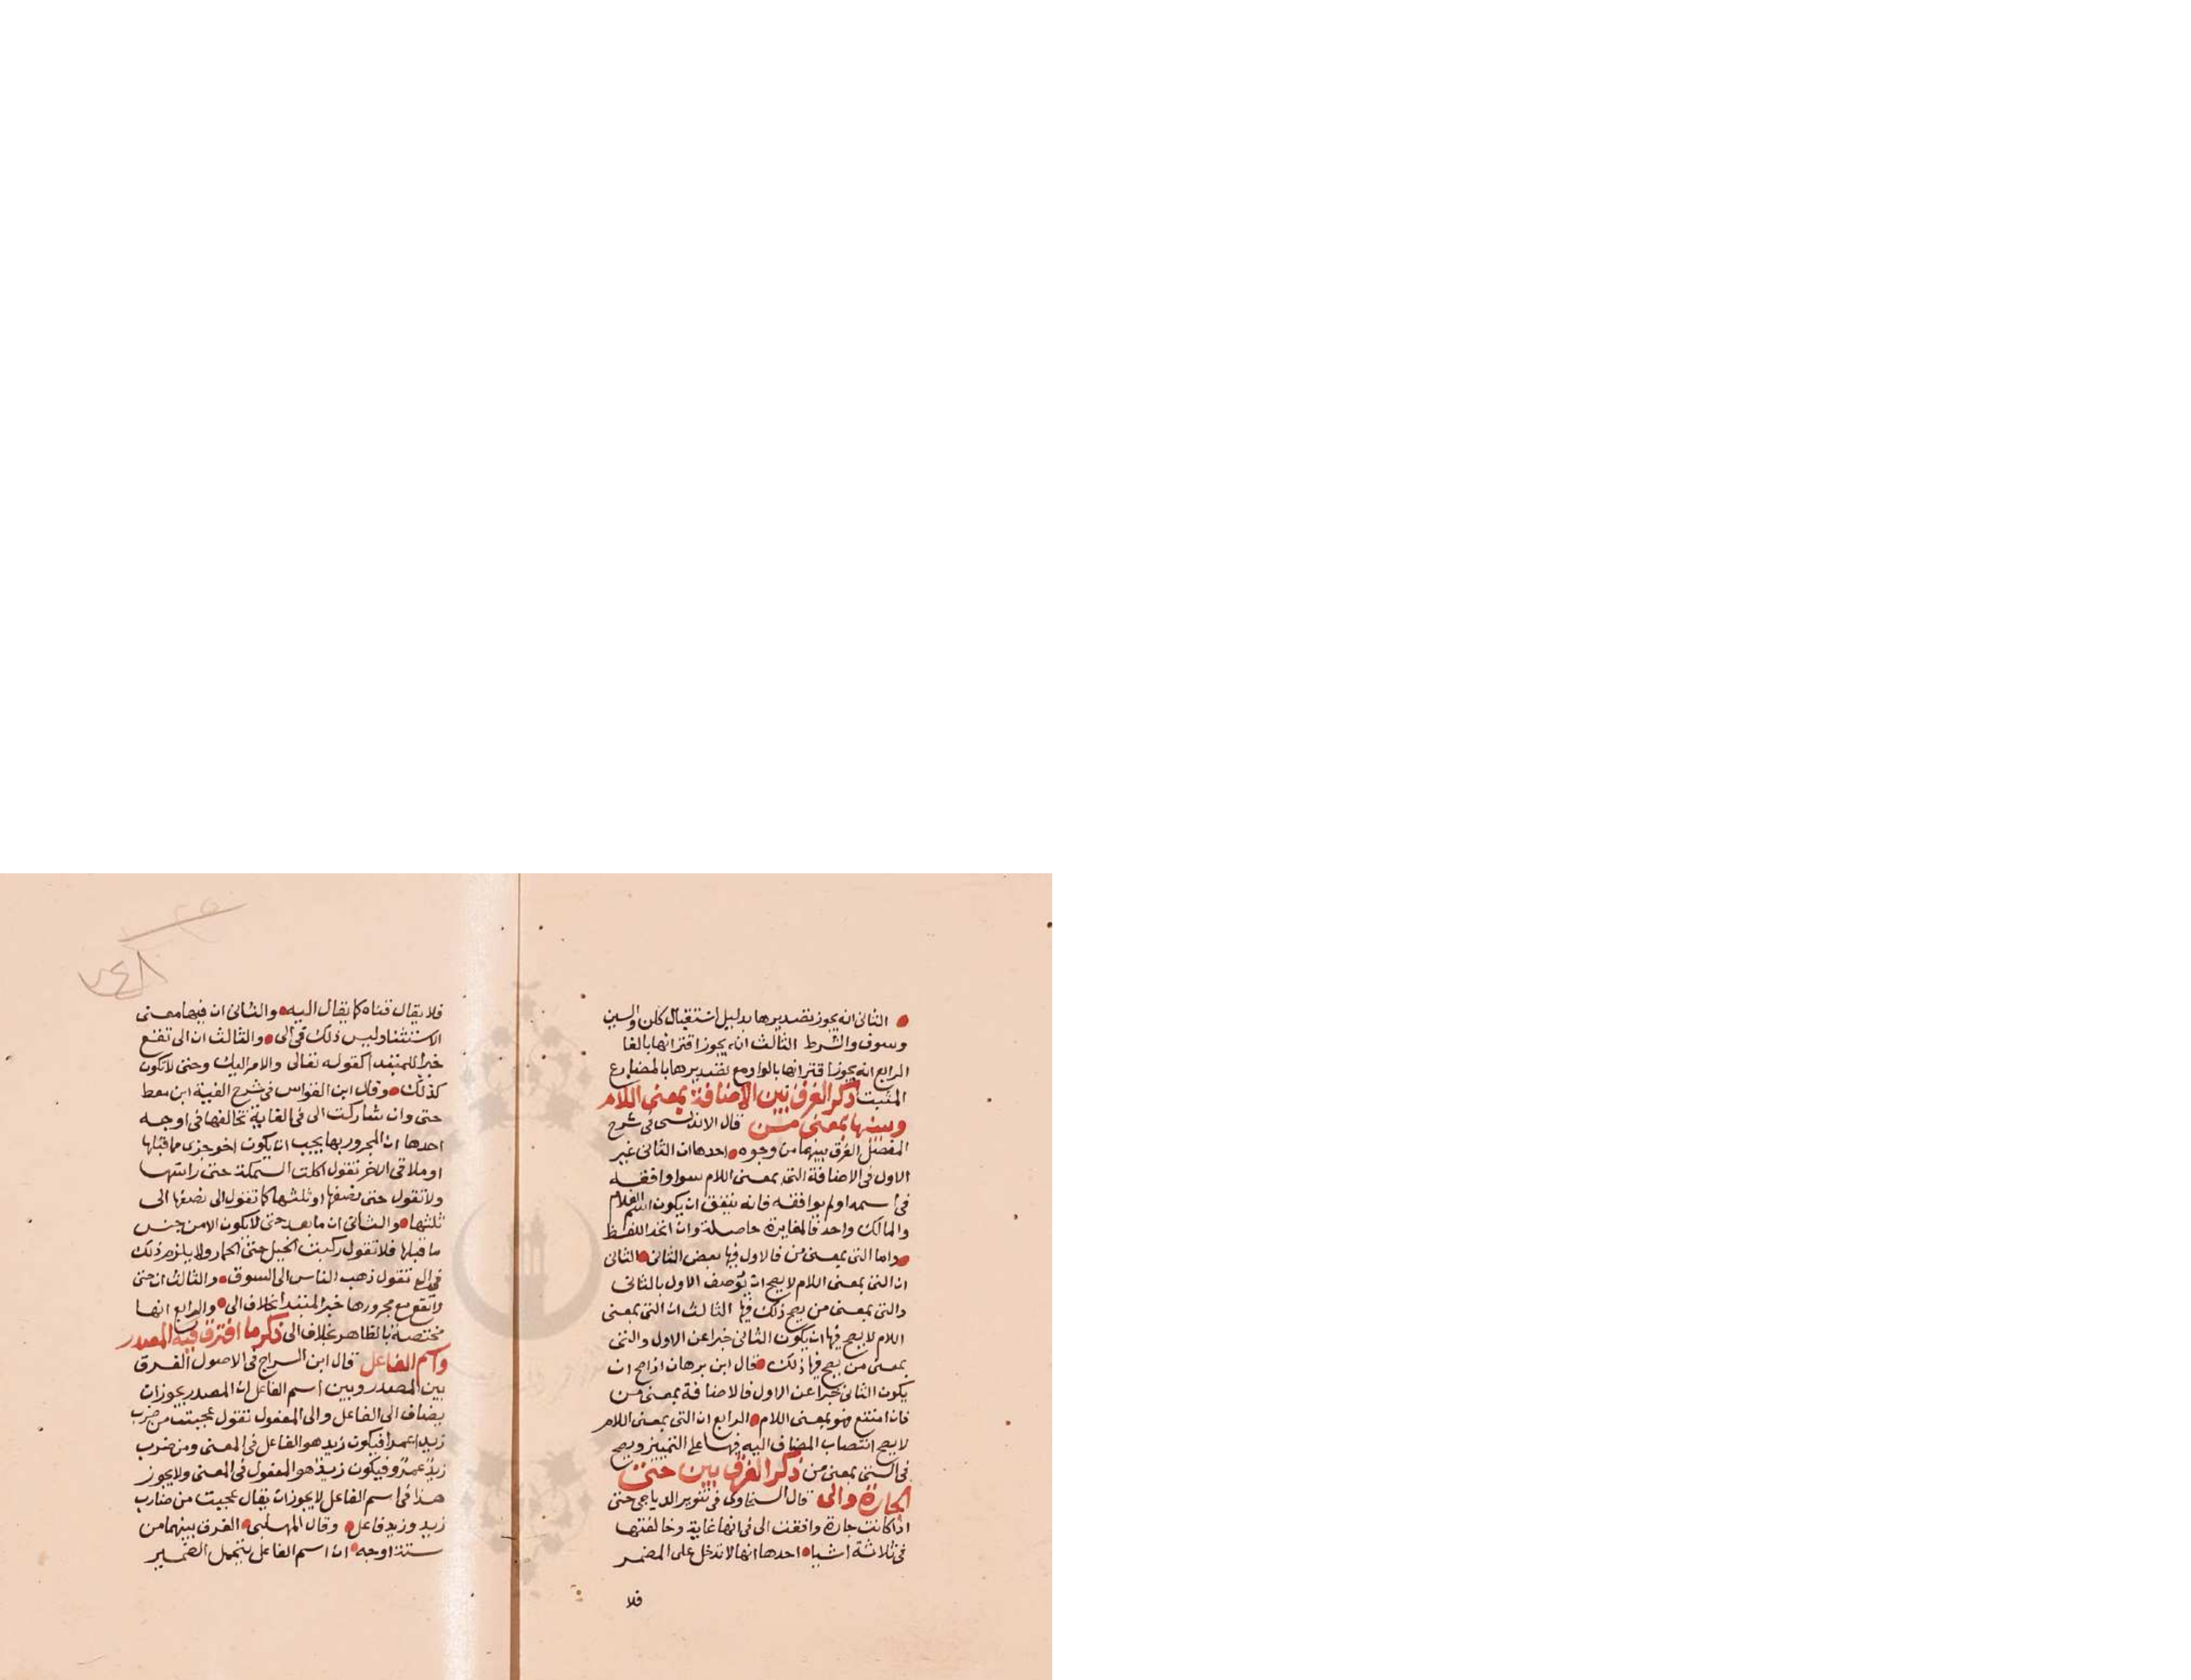 الثاني انه يجوز تصديرها بدليل استقبال كلن والسين
وسوف والشرط الثالث انه يجوز اقترانها بالفا
الرابع انه يجوز اقترانها بالواو مع تصديرها بالمضارع
المثبت ذكر الفرق بين الاضافة بمعنى اللام
وبينها بمعنى من قال الاندلسى فى شرح
المفصل الفرق بينهما من وجوه احدها ان الثانى غير
الاول فى الاضافة التى بمعنى اللام سوا وافقه
فى اسمه او لم يوافقه فانه يتفق ان يكون اسم الغلام
والمالك واحد فالمغايرة حاصلة وان اتحد اللفظ
واما التى بمعنى من فالاول فيها بعض الثانى الثانى
ان التى بمعنى اللام لا يصح ان يوصف الاول بالثانى
والتى بمعنى من يصح ذلك فيها الثالث ان التى بمعنى
اللام لا يصح فيها ان يكون الثانى خبرا عن الاول والتى
بمعنى من يصح فيها ذلك قال ابن برهان اذا صح ان
يكون الثانى خبرا عن الاول فالاضافة بمعنى من
فان امتنع فهو بمعنى اللام الرابع ان التى بمعنى اللام
لا يصح انتصاب المضاف اليه فيها على التمييز ويصح
فى التى بمعنى من ذكر الفرق بين حتى
الجارة والى قال السخاوى فى تنوير الدياجى حتى
اذا كانت جارة وافقت الى فى انها غاية وخالفتها
فى ثلاثة اشيا احدها انها لا تدخل على المضمر
فلا
٢٤٨
فلا يقال حتاه كما يقال اليه والثانى ان فيها معنى
الاستثنا وليس ذلك فى الى والثالث ان الى تقع
خبرا للمبتدا كقوله تعالى والامر اليك وحتى لا تكون
كذلك وقال ابن القواس فى شرح الفية ابن معط
حتى وان شاركت الى فى الغاية تخالفها فى اوجه
احدها ان المجرور بها يجب ان يكون اخر جزء مما قبلها
او ملاقى الاخر تقول اكلت السمكة حتى راسها
ولا تقول حتى نصفها او ثلثها كما تقول الى نصفها الى
ثلثها والثانى ان ما بعد حتى لا يكون الا من جنس
ما قبلها فلا تقول ركبت الخيل حتى الحمار ولا يلزم ذلك
فى الى تقول ذهب الناس الى السوق والثالث ان حتى
لا تقع مع مجرورها خبر المبتدا بخلاف الى والرابع انها
مختصة بالظاهر بخلاف الى ذكر ما افترق فيه المصدر
واسم الفاعل قال ابن السراج فى الاصول الفرق
بين المصدر وبين اسم الفاعل ان المصدر يجوز ان
يضاف الى الفاعل والى المفعول تقول عجبت من ضرب
زيد عمرا فيكون زيد هو الفاعل فى المعنى ومن ضرب
زيد عمرو فيكون زيد هو المفعول فى المعنى ولا يجوز
هذا فى اسم الفاعل لا يجوز ان يقال عجبت من ضارب
زيد وزيد فاعل وقال المهلبى الفرق بينهما من
ستة اوجه ان اسم الفاعل يتحمل الضمير